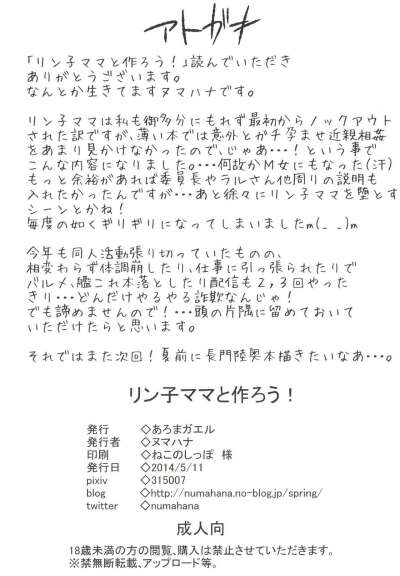 アトガキ
「リン子ママと作ろう！」読んでいただき
ありがとうございます。
なんとか生きてますヌマハナです。
リン子ママは私も御多分にもれず最初からノックアウト
された訳ですが、薄い本では意外とガチ孕ませ近親相姦
をあまり見かけなかったので、じゃあ・・・！という事で
こんな内容になりました。・・・何故かM女にもなった(汗)
もっと余裕があれば委員長やラルさん他周りの説明も
入れたかったんですが・・・あと徐々にリン子ママを堕とす
シーンとかね！
毎度の如くギリギリになってしまいましたm(_ _)m
今年も同人活動張り切っていたものの、
相変わらず体調崩したり、仕事に引っ張られたりで
パルメ、艦これ本落としたり配信も2,3回やった
きり・・・どんだけやるやる詐欺なんじゃ！
でも諦めませんので！・・・頭の片隅に留めておいて
いただけたらと思います。
それではまた次回！夏前に長門陸奥本描きたいなあ・・・。
リン子ママと作ろう！
発行 ◇あろまガエル
発行者 ◇ヌマハナ
印刷 ◇ねこのしっぽ 様
発行日 ◇2014/5/11
pixiv ◇315007
blog ◇http://numahana.no-blog.jp/spring/
twitter ◇numahana
成人向
18歳未満の方の閲覧、購入は禁止させていただきます。
※禁無断転載、アップロード等。